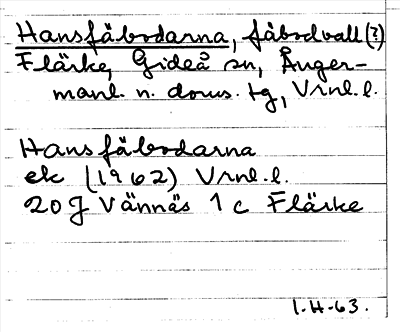 Hansfäbodarna, fäbodvall (?)
Flärke, Gideå sn, Ånger-
manl. n. doms. tg, Vrnl. l.
Hansfäbodarna
ek (1962) Vrnl. l.
20 J Vännäs 1 c Flärke
1.4.63.